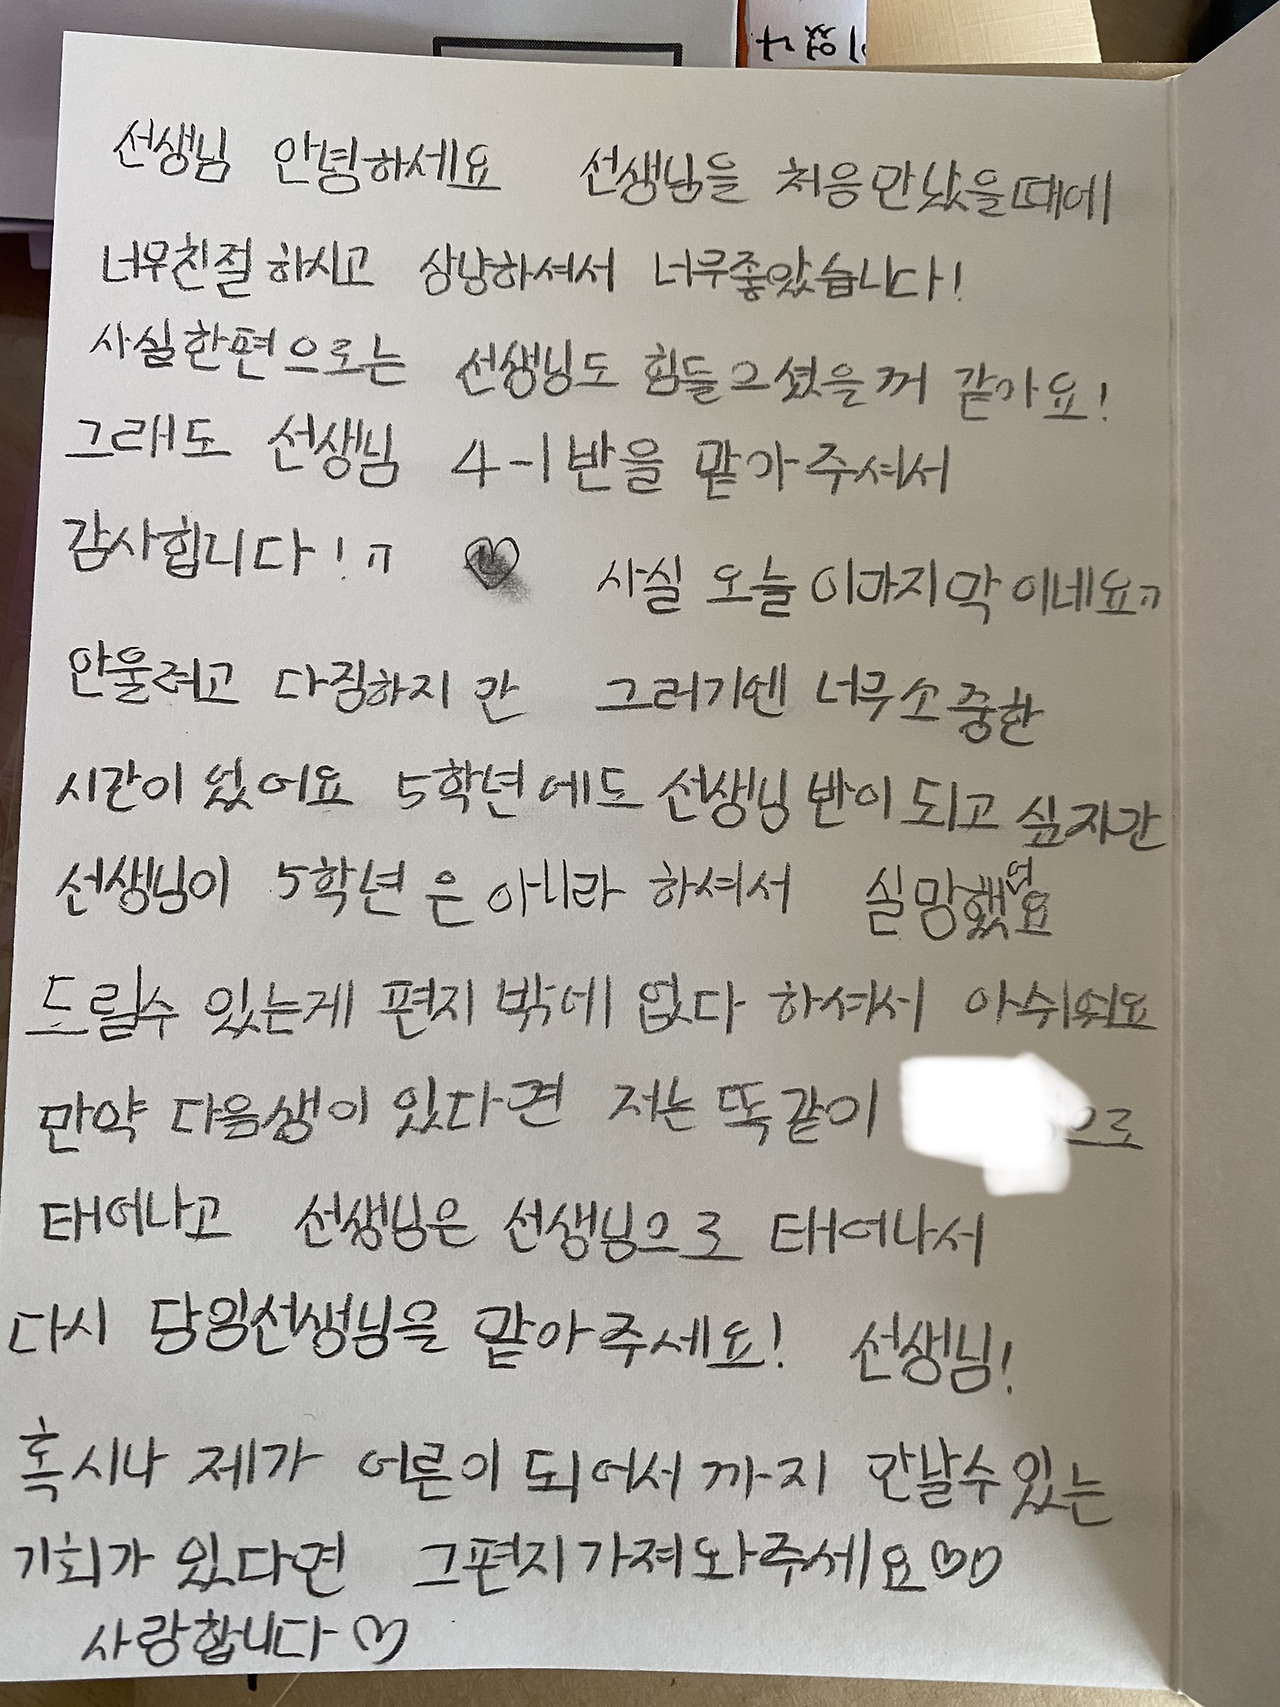 이었나
선생님 안녕하세요 선생님을 처음만났을때에
너무친절하시고 상냥하셔서 너무좋았습니다!
사실한편으로는 선생님도 힘들으셨을꺼 같아요!
그래도 선생님 4-1반을 맡아주셔서
감사합니다!ㅠ ♡ 사실 오늘이마지막이네요ㅠ
안울려고 다짐하지만 그러기엔 너무소중한
시간이 었어요 5학년에도 선생님반이되고 싶지만
선생님이 5학년은 아니라 하셔서 실망했어요
드릴수 있는게 편지밖에 없다 하셔서 아쉬워요
만약 다음생이 있다면 저는 똑같이 으로
태어나고 선생님은 선생님으로 태어나서
다시 담임선생님을 맡아주세요! 선생님!
혹시나 제가 어른이되어서까지 만날수있는
기회가 있다면 그편지가져와주세요♡♡
사랑합니다♡